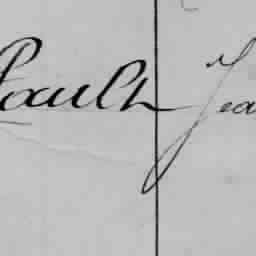 Pault Jea